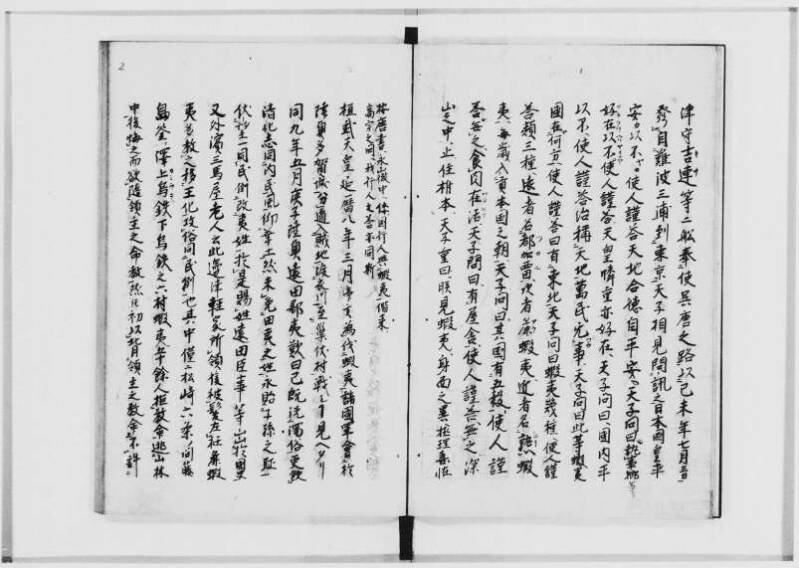 津守吉連等二舩奉使吳唐之路以己未年七月三日
發自難波三浦到東京天子相見問訊之日本國皇平
安以不使人謹答天地合德自平安天子問曰執事卿等
好在以不使人謹答天皇憐重亦好在天子問曰國內平
以不使人謹答治稱天地萬民无事天子問曰此等蝦夷
國在何方使人謹答曰有東北天子問曰蝦夷幾種使人謹
答類三種遠者名都加留次者麁蝦夷近者名熟蝦
夷每歲入貢本國之朝天子問曰其國有五穀使人謹
答無之食肉存活天子問曰有屋舍使人謹答無之深
山之中止住樹本天子重曰朕見蝦夷身面之異極理喜怪
1
2
林唐書永山後中使因行人與蝦夷偕来
高宗之問我行人之答亦同斯
桓武天皇延曆八年三月為伐蝦夷諸國軍會於
陸奧多賀城分道入賊地渡衣川至巢伏村戰ヒ見ヘタリ
同九年五月庚子陸奧遠田郡夷欵曰己既洗濁俗更欽
清化志同內民風仰華土然未免田夷之姓永貽子孫之耻
伏於一同民例改夷姓於是賜姓遠田臣
又外濱三馬屋老人云此邊津輕家所領後被髮左衽麁蝦
夷教之移王化改俗同民例也其中僅二松崎六条間藤
島釜澤上烏鉄下烏鉄之六村蝦夷千余人拒教命逃山林
中後悔之而欲隨領主之命教然以初不背領主之教命不許